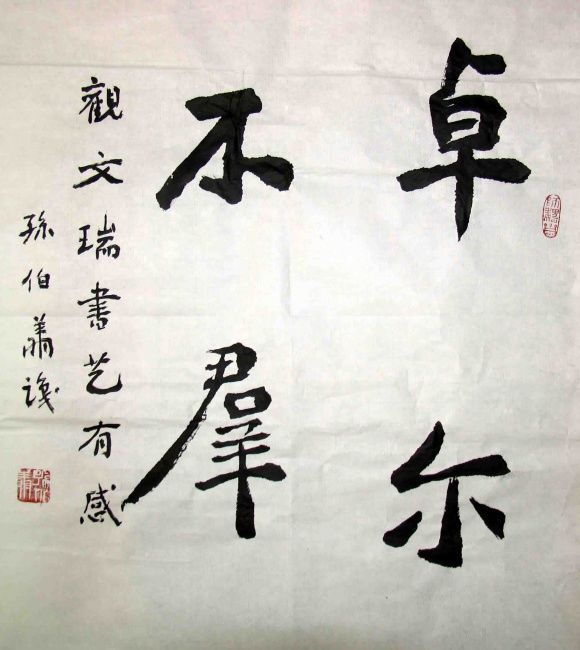 卓尔
不羣
觀文瑞書艺有感
孫伯翔識